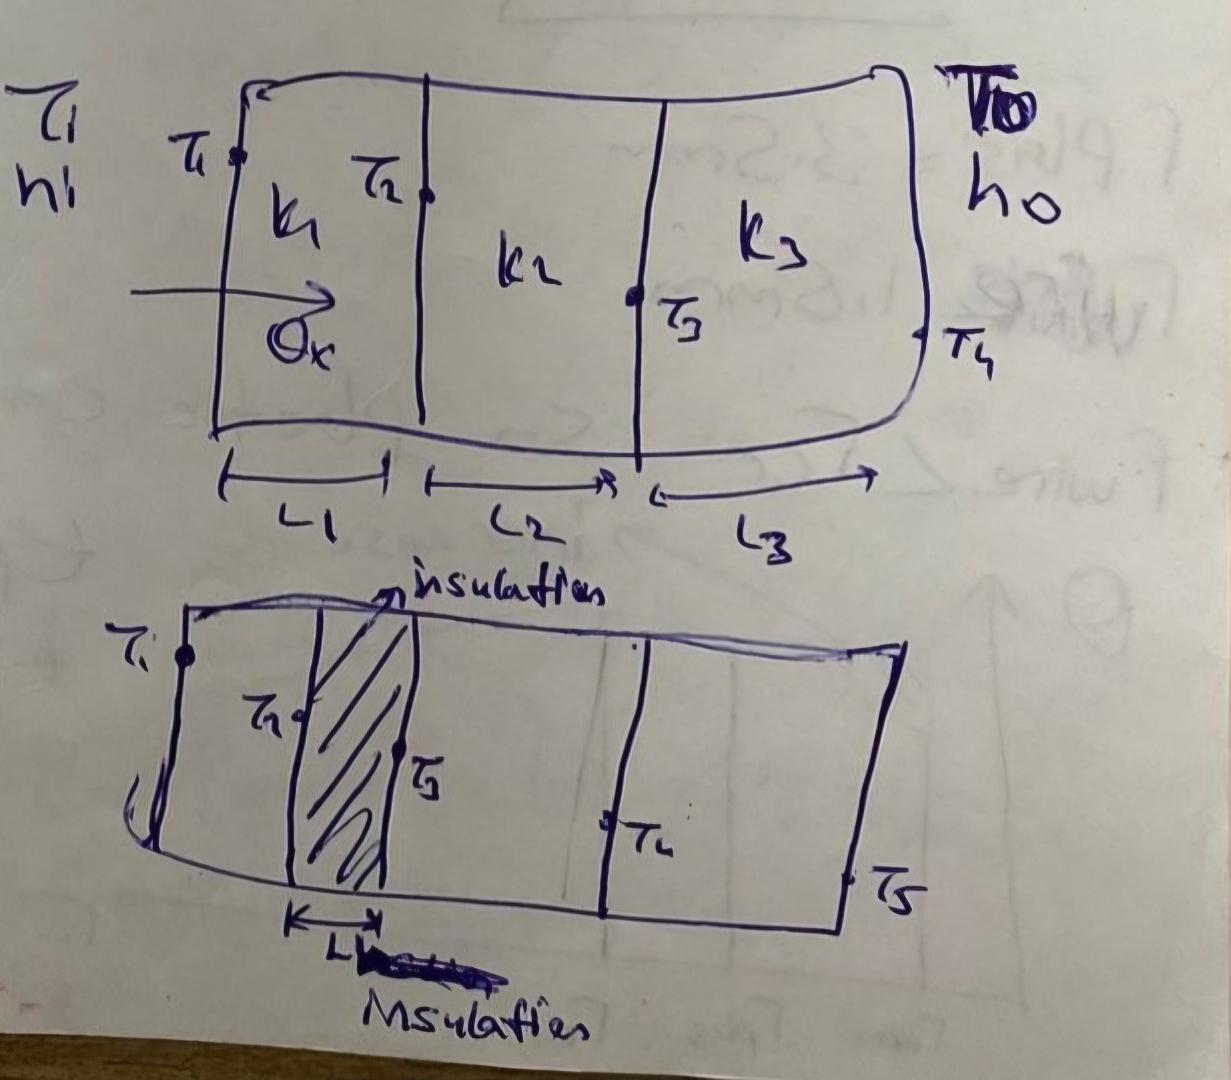 Ti
hi
T1
K1
T2
K2
K3
T3
To
ho
T4
Qx
L1
L2
L3
insulation
Ti
T2
T3
T4
T5
L
Insulation